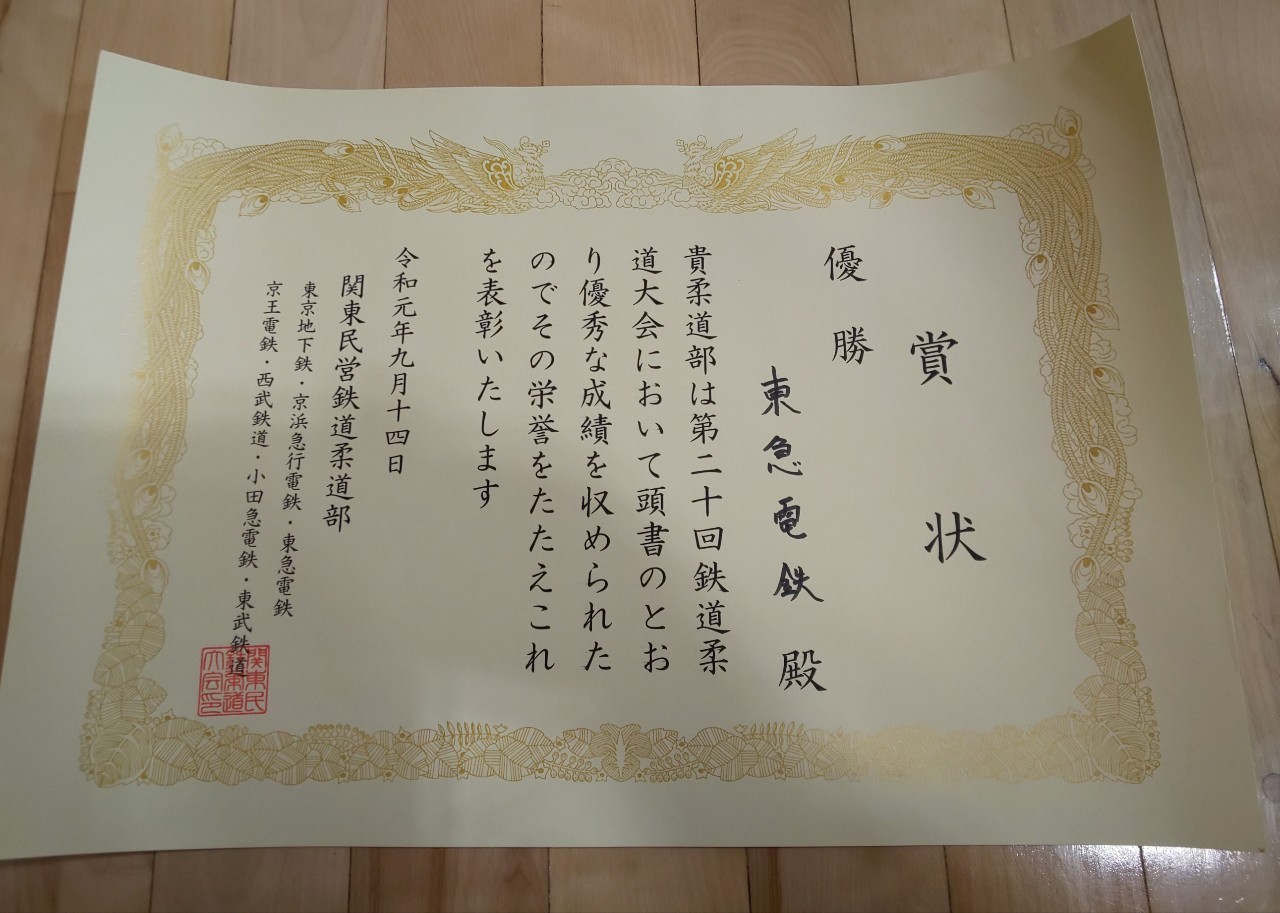 賞状
優勝
東急電鉄 殿
貴柔道部は第二十回鉄道柔
道大会において頭書のとお
り優秀な成績を収められた
のでその栄誉をたたえこれ
を表彰いたします
令和元年九月十四日
関東民営鉄道柔道部
東京地下鉄・京浜急行電鉄・東急電鉄
京王電鉄・西武鉄道・小田急電鉄・東武鉄道
関東民
大会印